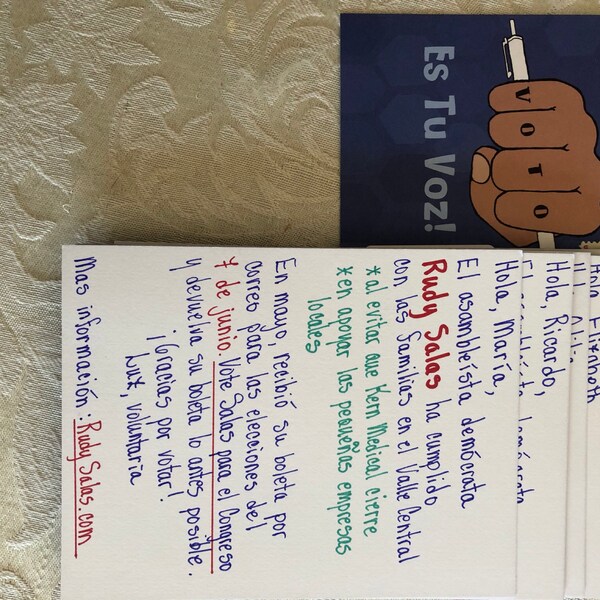 Es Tu Voz!
VOTO
Hola, María,
El asambleísta demócrata
Rudy Salas ha cumplido
con las familias en el Valle Central
*al evitar que Kern Medical cierre
*en apoyar las pequeñas empresas
locales
En mayo, recibió su boleta por
correo para las elecciones del
7 de junio. Vote Salas para el Congreso
y devuelva su boleta lo antes posible.
¡Gracias por votar!
Luz, voluntaria
Mas información: RudySalas.com
Hola, Ricardo,
Hola, Elizabeth